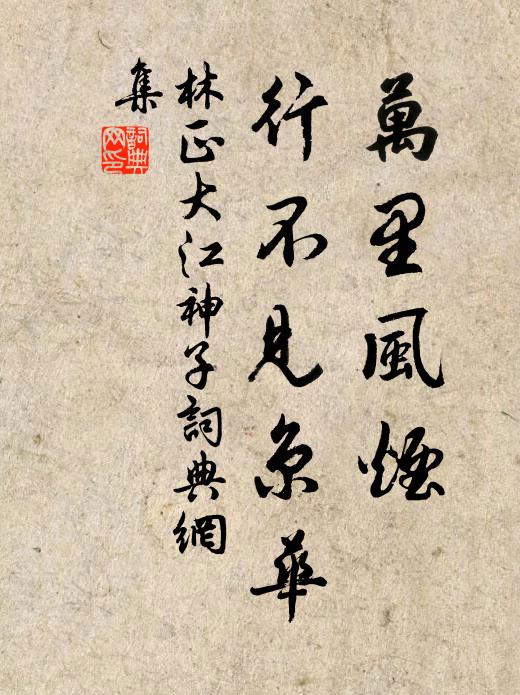 萬里風煙
行不見京華
林正大江神子詞典網
集
詞典網印